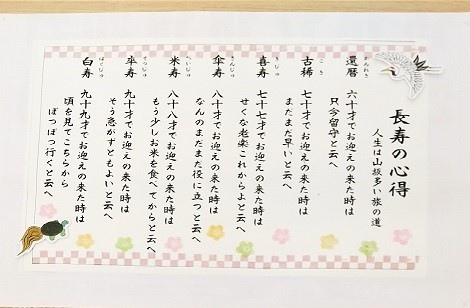 長寿の心得
人生は山坂多い旅の道
かんれき
還暦 六十才でお迎えの来た時は
只今留守と云へ
こき
古稀 七十才でお迎えの来た時は
まだまだ早いと云へ
きじゅ
喜寿 七十七才でお迎えの来た時は
せくな老楽これからよと云へ
さんじゅ
傘寿 八十才でお迎えの来た時は
なんのまだまだ役に立つと云へ
べいじゅ
米寿 八十八才でお迎えの来た時は
もう少しお米を食べてからと云へ
そつじゅ
卒寿 九十才でお迎えの来た時は
そう急がずともよいと云へ
はくじゅ
白寿 九十九才でお迎えの来た時は
頃を見てこちらから
ぼつぼつ行くと云へ